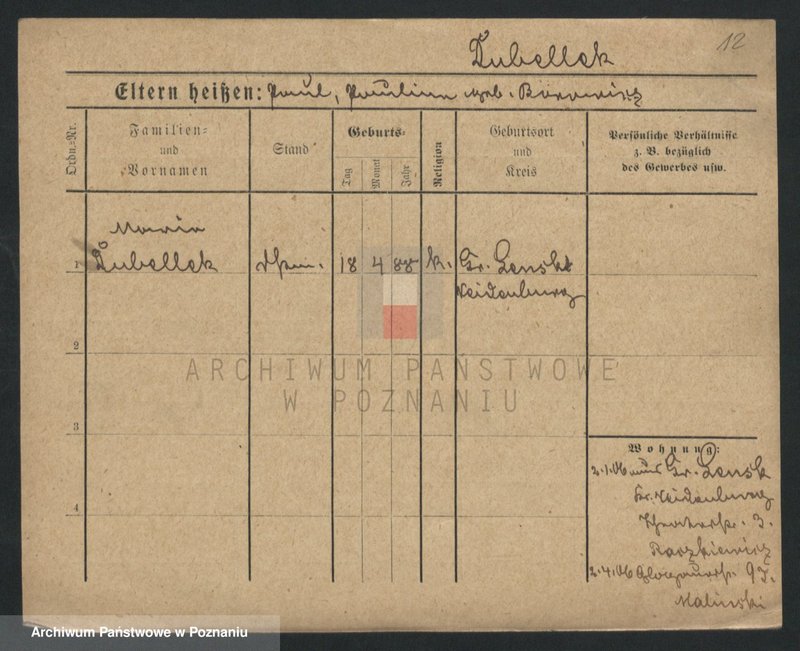 12
Dubellek
Eltern heißen: Paul, Paulina geb. Borowicz
Ordn.-Nr.
Familien-
und
Vornamen
Stand
Geburts-
Tag
Monat
Jahr
Religion
Geburtsort
und
Kreis
Persönliche Verhältnisse
z. B. bezüglich
des Gewerbes usw.
Maria
1 Dubellek 18 4 88 k. Gr. Lensk
Neidenburg
2
3
4
ARCHIWUM PAŃSTWOWE
W POZNANIU
Wohnung:
2.1.06 aus Gr. Lensk
Kr. Neidenburg
3.
Raczkiewicz
2.4.06 Glogauerstr. 97.
Malinski
Archiwum Państwowe w Poznaniu